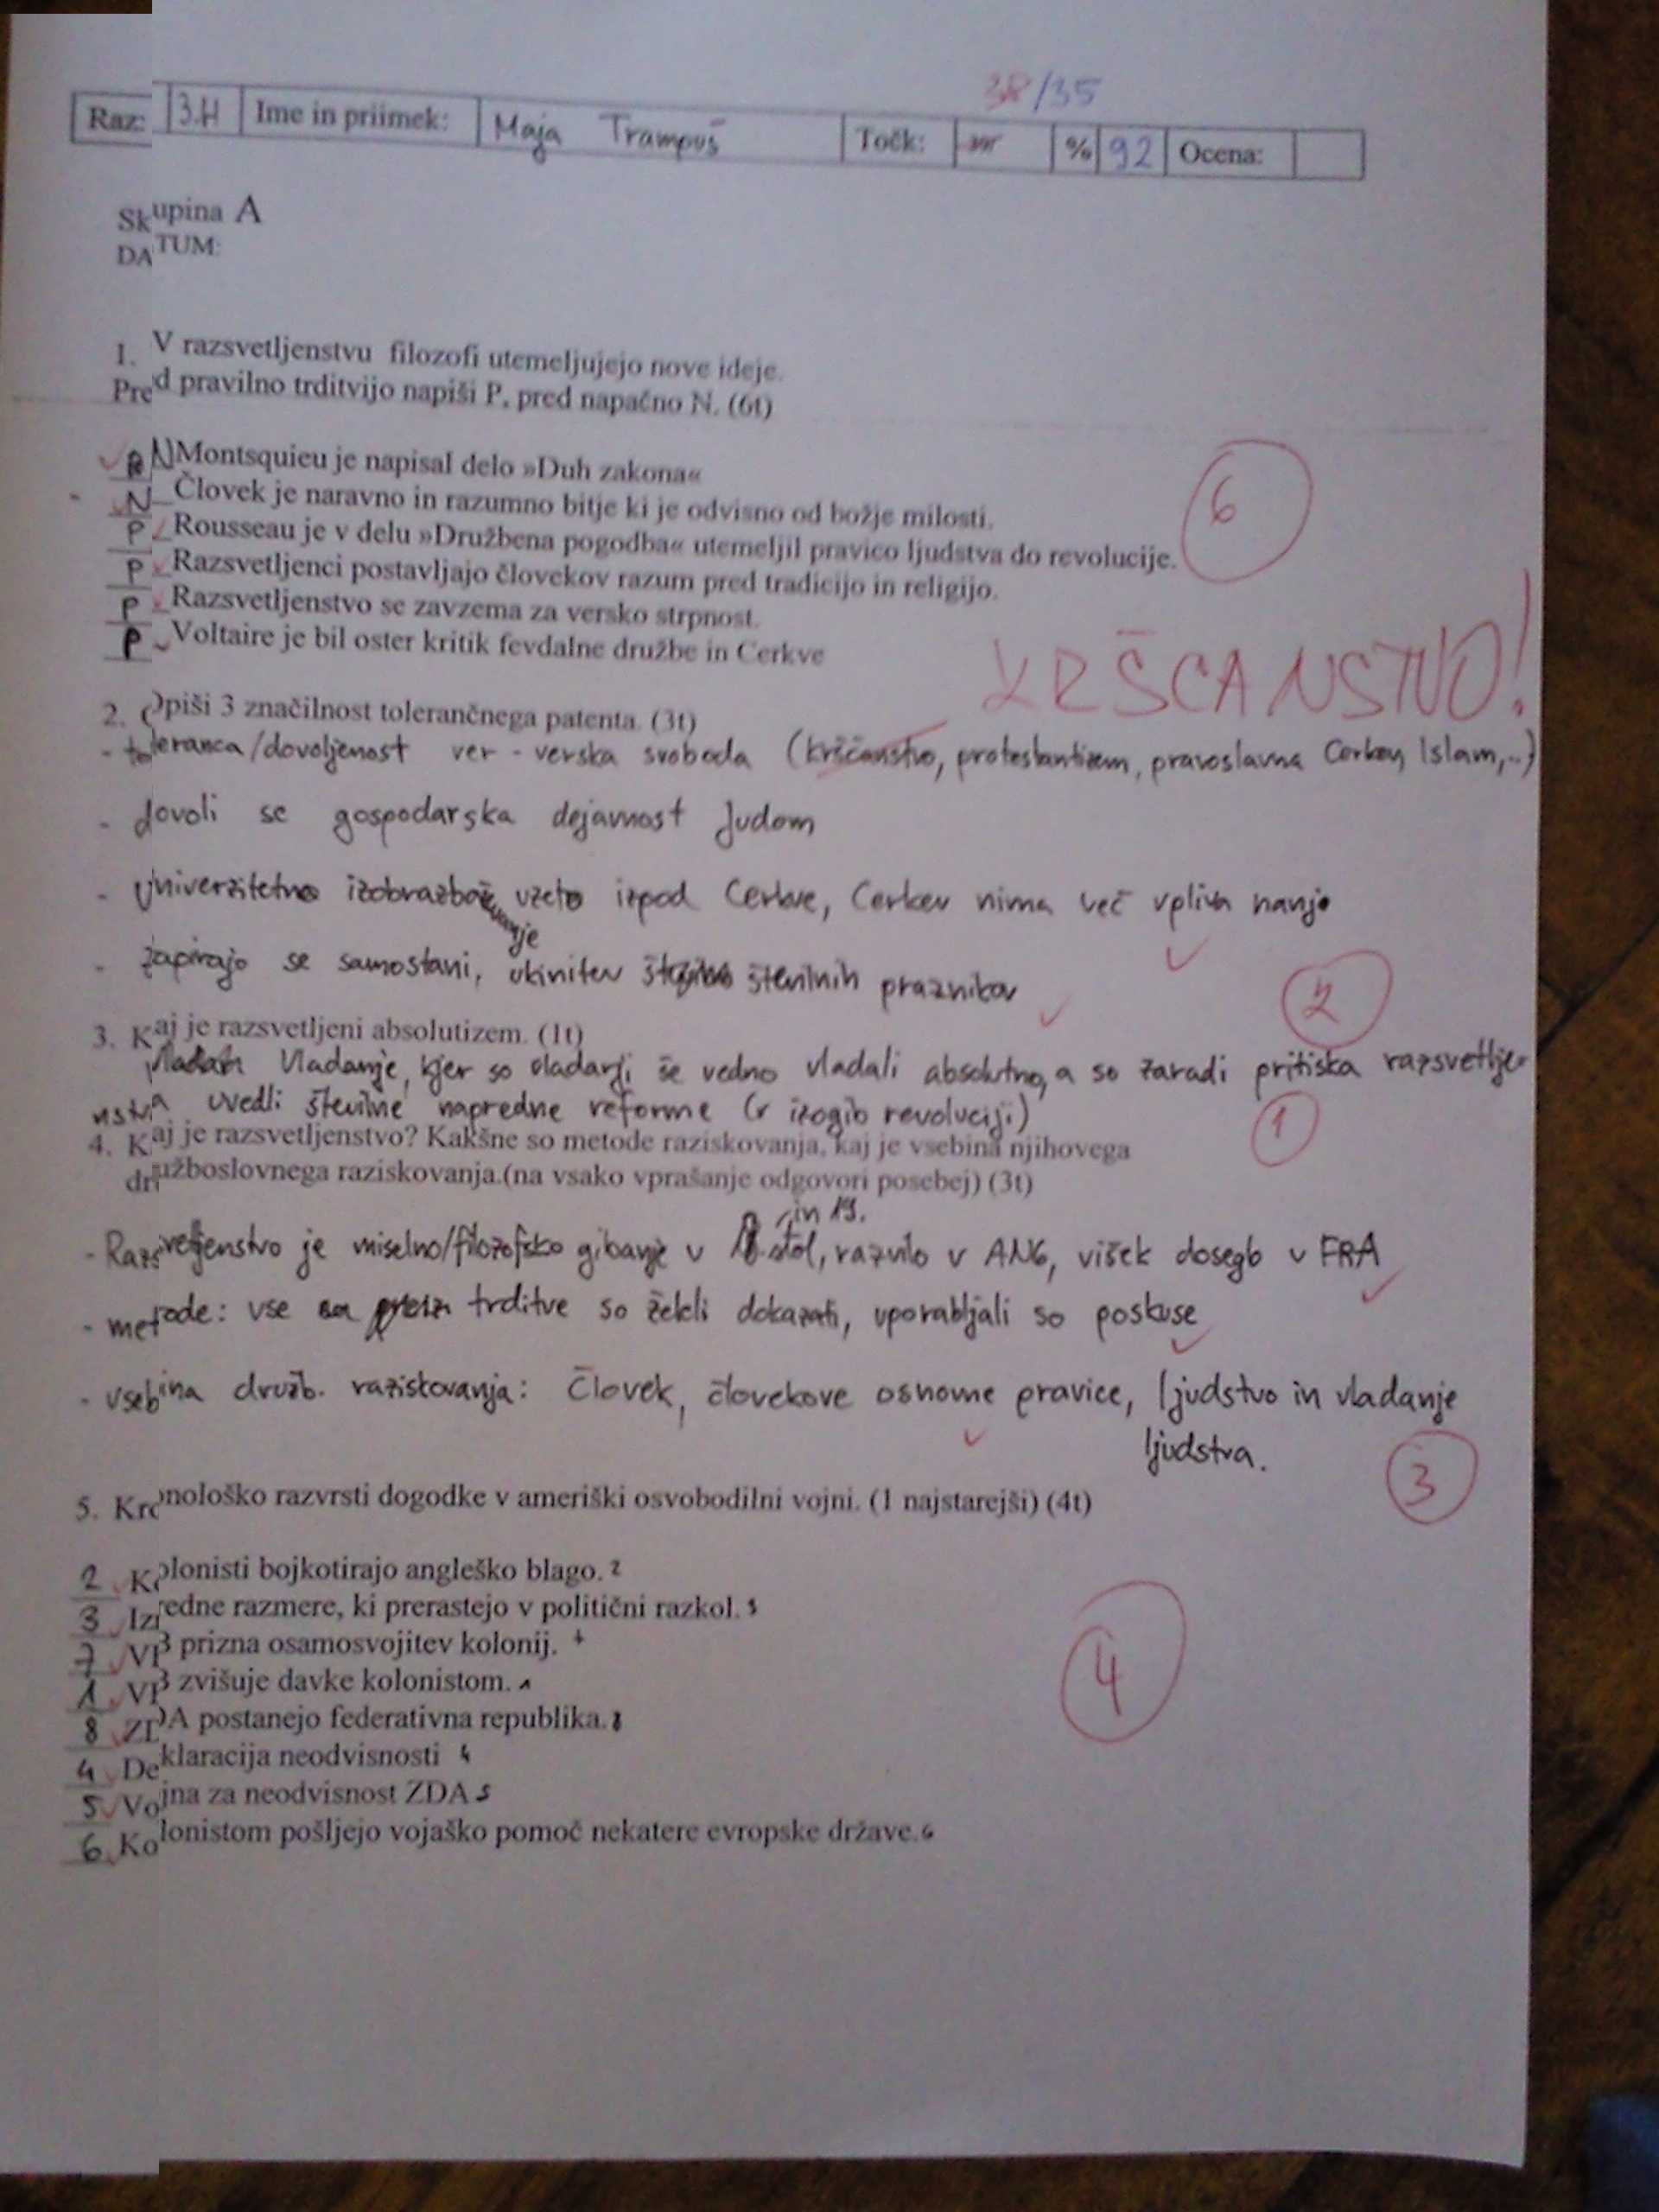 38/35
Raz: 3.H Ime in priimek: Maja Trampuš Točk: % 92 Ocena:
Skupina A
DATUM:
1. V razsvetljenstvu filozofi utemeljujejo nove ideje.
Pred pravilno trditvijo napiši P, pred napačno N. (6t)
N Montsquieu je napisal delo »Duh zakona«
N Človek je naravno in razumno bitje ki je odvisno od božje milosti.
6
P Rousseau je v delu »Družbena pogodba« utemeljil pravico ljudstva do revolucije.
P Razsvetljenci postavljajo človekov razum pred tradicijo in religijo.
P Razsvetljenstvo se zavzema za versko strpnost.
P Voltaire je bil oster kritik fevdalne družbe in Cerkve
KRŠČANSTVO!
2. Opiši 3 značilnost tolerančnega patenta. (3t)
- toleranca/dovoljenost ver - verska svoboda (krščanstvo, protestantizem, pravoslavna Cerkev, Islam,..)
- dovoli se gospodarska dejavnost Judom
- Univerzitetno izobraževanje vzeto izpod Cerkve, Cerkev nima več vpliva nanjo
- zapirajo se samostani, ukinitev številnih praznikov
2
3. Kaj je razsvetljeni absolutizem. (1t)
Vladanje, kjer so vladarji še vedno vladali absolutno, a so zaradi pritiska razsvetlje-
nstva uvedli številne napredne reforme (v izogib revoluciji)
1
4. Kaj je razsvetljenstvo? Kakšne so metode raziskovanja, kaj je vsebina njihovega
družboslovnega raziskovanja.(na vsako vprašanje odgovori posebej) (3t)
in 19.
- Razsvetljenstvo je miselno/filozofsko gibanje v 18. stol, razvilo v ANG, višek doseglo v FRA
- metode: vse trditve so želeli dokazati, uporabljali so poskuse
- vsebina družb. raziskovanja: Človek, človekove osnovne pravice, ljudstvo in vladanje
ljudstva.
3
5. Kronološko razvrsti dogodke v ameriški osvobodilni vojni. (1 najstarejši) (4t)
2 Kolonisti bojkotirajo angleško blago. 2
3 Izredne razmere, ki prerastejo v politični razkol. 3
7 VB prizna osamosvojitev kolonij. 7
1 VB zvišuje davke kolonistom. 1
4
8 ZDA postanejo federativna republika. 8
4 Deklaracija neodvisnosti 4
5 Vojna za neodvisnost ZDA 5
6 Kolonistom pošljejo vojaško pomoč nekatere evropske države. 6